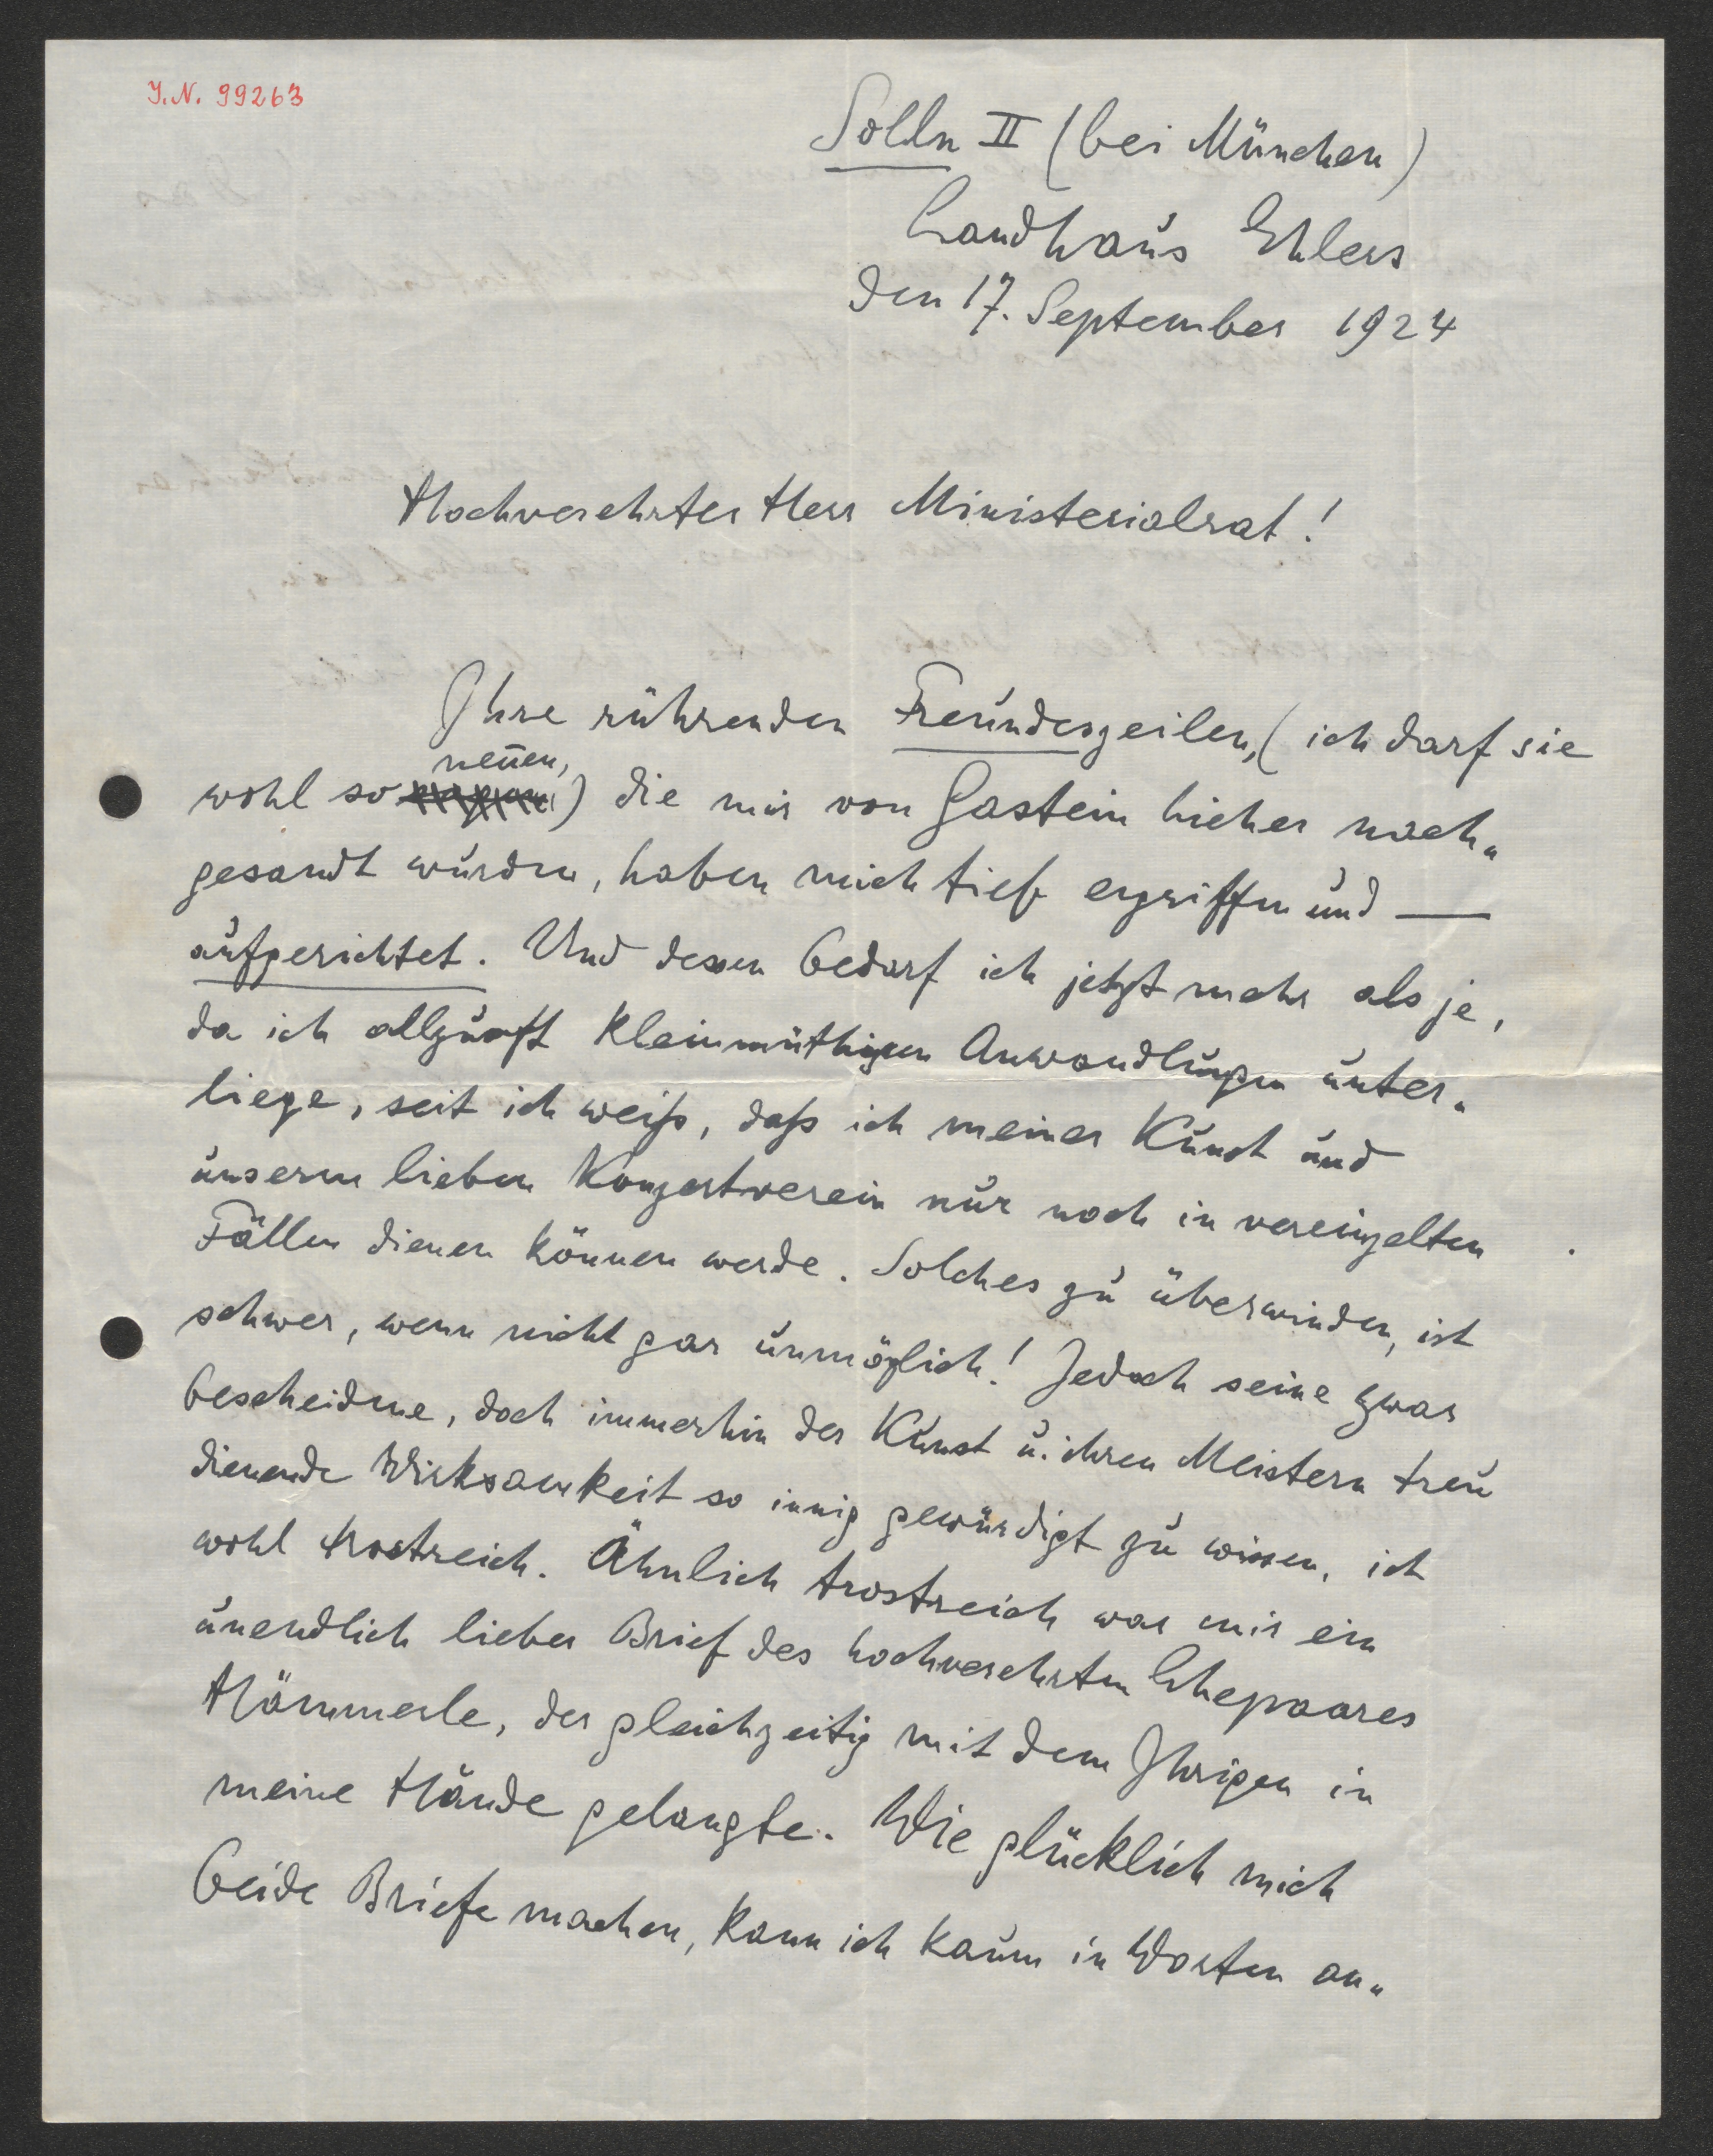 J.N. 99263
Solln II (bei München)
Landhaus Ehlers
den 17. September 1924
Hochverehrter Herr Ministerialrat!
Ihre rührenden Freundeszeilen, (ich darf sie
nen̄en,
wohl so ) die mir von Gastein hieher nach„
gesandt wurden, haben mich tief ergriffen und —
aufgerichtet. Und dessen bedarf ich jetzt mehr als je,
da ich allzuoft kleinmüthigen Anwandlungen unter„
liege, seit ich weiß, daß ich meiner Kunst und
unserm lieben Konzertverein nur noch in vereinzelten
Fällen dienen können werde. Solches zu überwinden, ist
schwer, wenn nicht gar unmöglich! Jedoch seine zwar
bescheidne, doch immerhin der Kunst u. ihren Meistern treu
dienende Wirksamkeit so innig gewürdigt zu wissen, ist
wohl trostreich. Ähnlich trostreich war mir ein
unendlich lieber Brief des hochverehrten Ehepaares
Hämmerle, der gleichzeitig mit dem Ihrigen in
meine Hände gelangte. Wie glücklich mich
beide Briefe machen, kann ich kaum in Worten an„